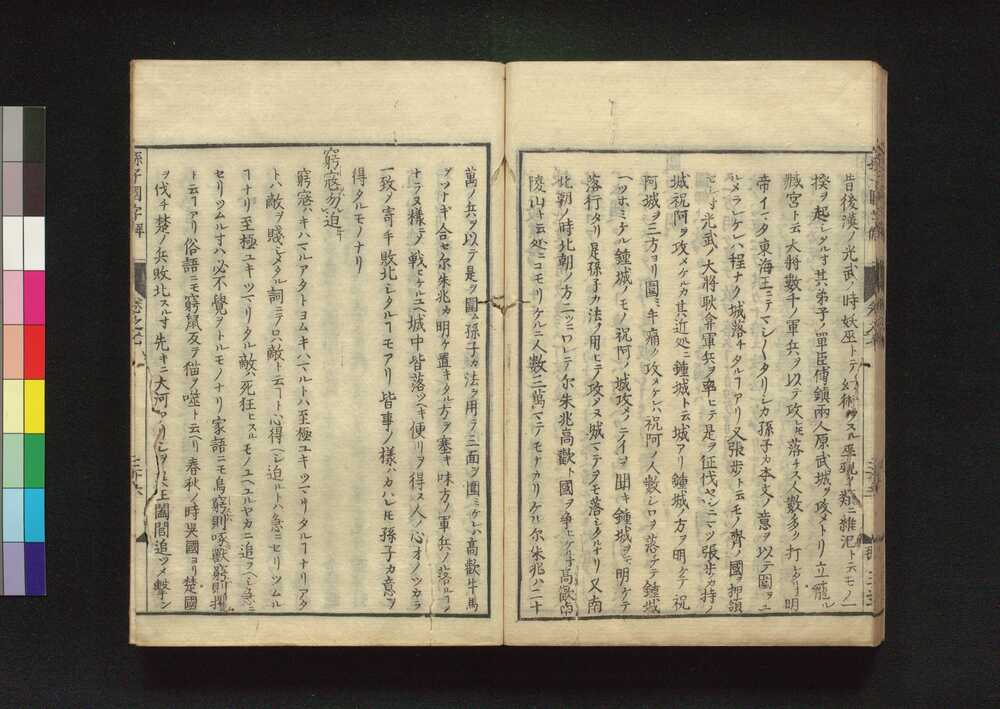 昔後漢ノ光武ノ時妖巫トテ幻術ヲスル巫覡ノ類ニ維汜ト云モノ一
揆ヲ起シタル寸其弟子ノ單臣傅鎮兩人原武城ヲ攻メトリ立籠ル
臧宮ト云大將數千ノ軍兵ヲ以テ攻レ𪜈落チス人數多ク打レタリ明
帝イマタ東海王ニテマシ〱タリシカ孫子カ本文ノ意ヲ以テ圍ヲユ
ルメラレケレハ程ナク城落チタルヿアリ又張歩ト云モノ齊ノ國ヲ押領
セシ寸光武ノ大將耿弇軍兵ヲ率ヒテ是ヲ征伐セシニマツ張歩カ持ノ
城祝阿ヲ攻メケルカ其近処ニ鍾城ト云城アリ鍾城ノ方ヲ明ケテ祝
阿城ヲ三方ヨリ圍ミキ痛ク攻メケレハ祝阿ノ人數シロヲ落シテ鍾城
ヘツホミケル鍾城ノモノ祝阿ノ城攻メノテイヲ聞キ鍾城ヲモ明ケテ
落行タリ是孫子カ法ノ用ヒテ攻タヌ城マテヲモ落シタルナリ又南
北朝ノ時北朝ノ方二ツニワレテ尓朱兆高歡ト國ヲ爭ヒケル寸高歡
陵山ト云処ニコモリケルニ人數三萬マテモナカリケル尓朱兆ハ二十
萬ノ兵ヲ以テ是ヲ圍ム孫子カ法ヲ用テ三面ヲ圍ミケレハ高歡牛馬
ヲツナギ合セ尓朱兆カ明ケ置キタル方ヲ塞キ味方ノ軍兵ノ落ルヿノ
ナラヌ様ニテ戰ヒケルユヘ城中皆落ツヘキ便リヲ得ス人ノ心オノツカラ
一致ノ寄手敗北シタルヿモアリ皆事ノ様ハカハレ𪜈孫子カ意ヲ
得タルモノナリ
窮寇勿迫
窮寇ハキハマルアタトヨムキハマルトハ至極ユキツマリタルヿナリアタ
トハ敵ヲ賤シメタル詞ニテ只敵ト云ヿト心得ヘシ迫ルトハ急ニセリツムル
ヿナリ至極ユキツマリタル敵ハ死狂ヒスルモノユヘユルヤカニ追フヘシ急ニ
セリツムル寸ハ必不覺ヲトルモノナリ家語ニモ鳥窮則啄獸窮則攫
ト云ヿアリ俗語ニモ窮鼠反テ猫ヲ噬ト云ヘリ春秋ノ時吳國ヨリ楚國
ヲ伐チ楚ノ兵敗北スル寸先キニ大河アリシヲ吳王闔閭追ツメ擊ン
孫子國字解